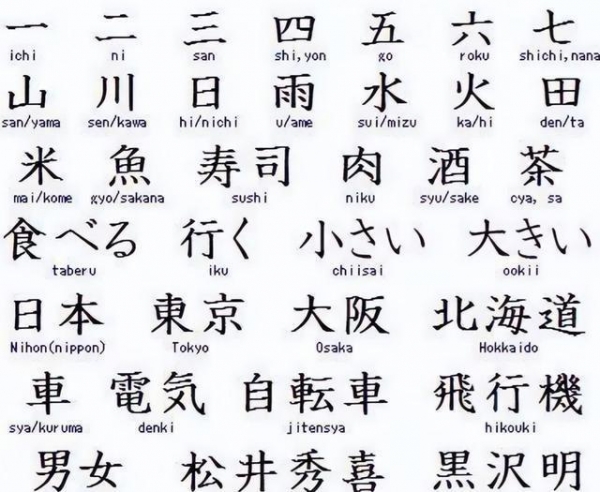 一 二 三 四 五 六 七
ichi ni san shi,yon go roku shichi,nana
山 川 日 雨 水 火 田
san/yama sen/kawa hi/nichi u/ame sui/mizu ka/hi den/ta
米 魚 寿司 肉 酒 茶
mai/kome gyo/sakana sushi niku syu/sake cya, sa
食べる 行く 小さい 大きい
taberu iku chiisai ookii
日本 東京 大阪 北海道
Nihon(nippon) Tokyo Osaka Hokkaido
車 電気 自転車 飛行機
sya/kuruma denki jitensya hikouki
男女 松井秀喜 黒沢明